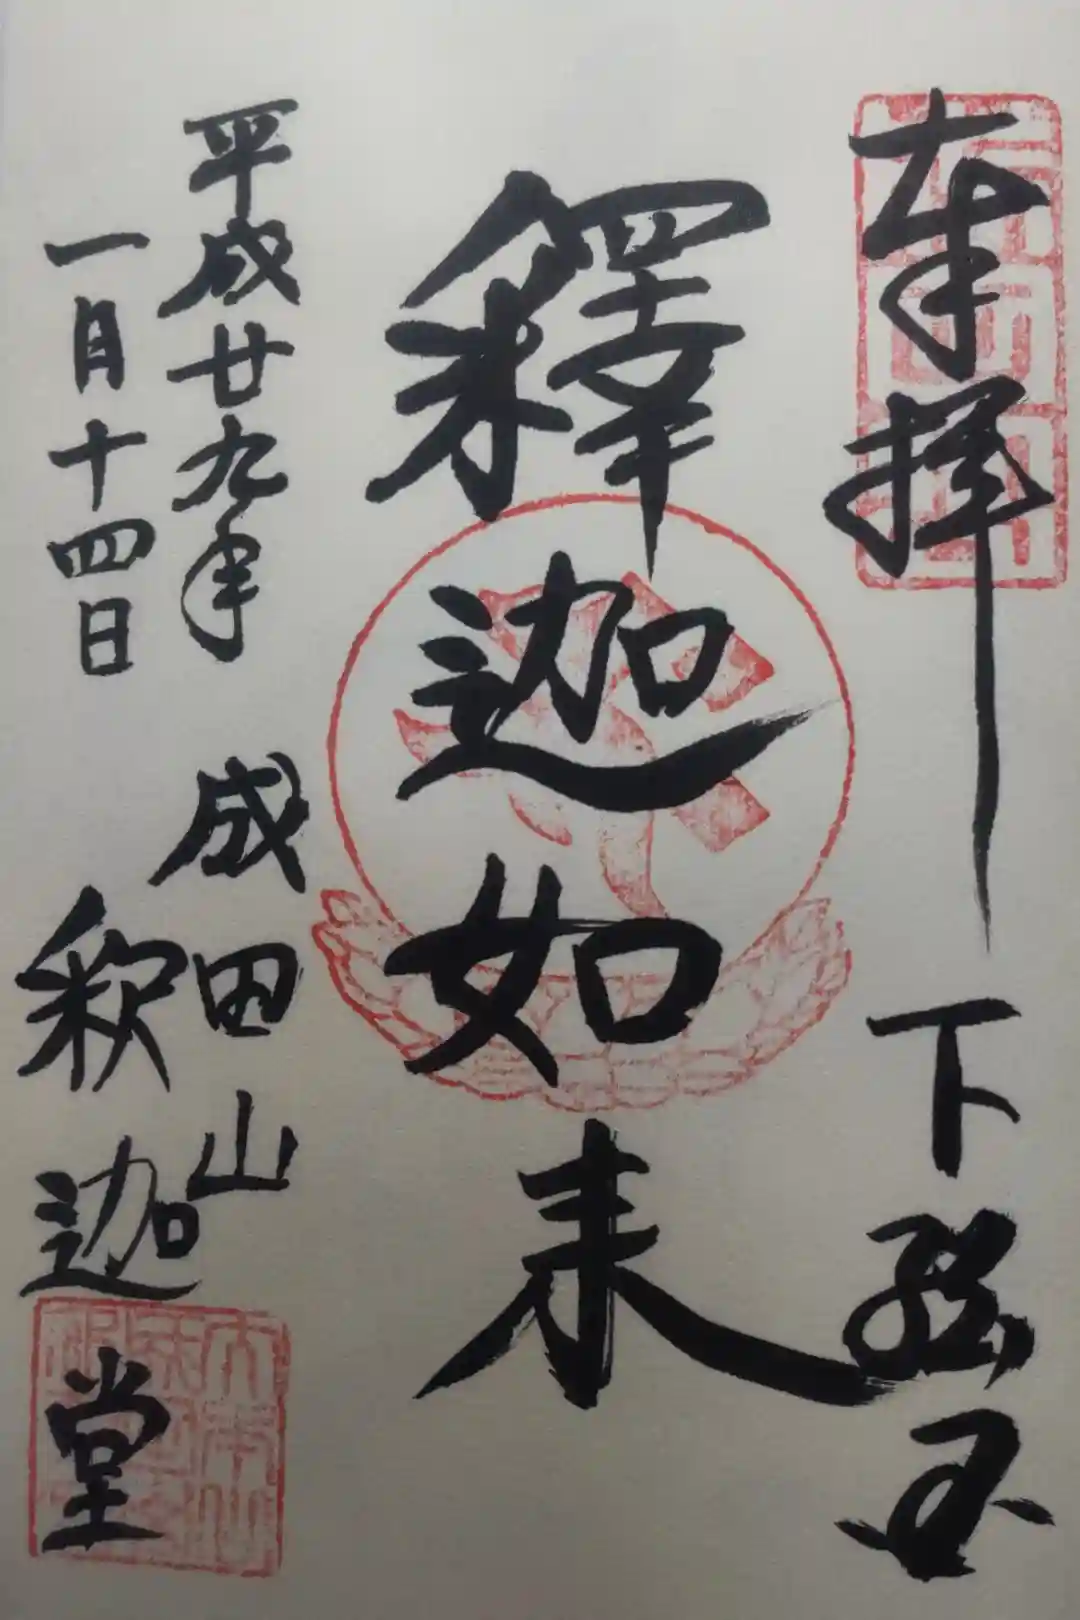 奉拝　下総国
釋迦如来
平成廿九年　成田山
一月十四日　釈迦堂